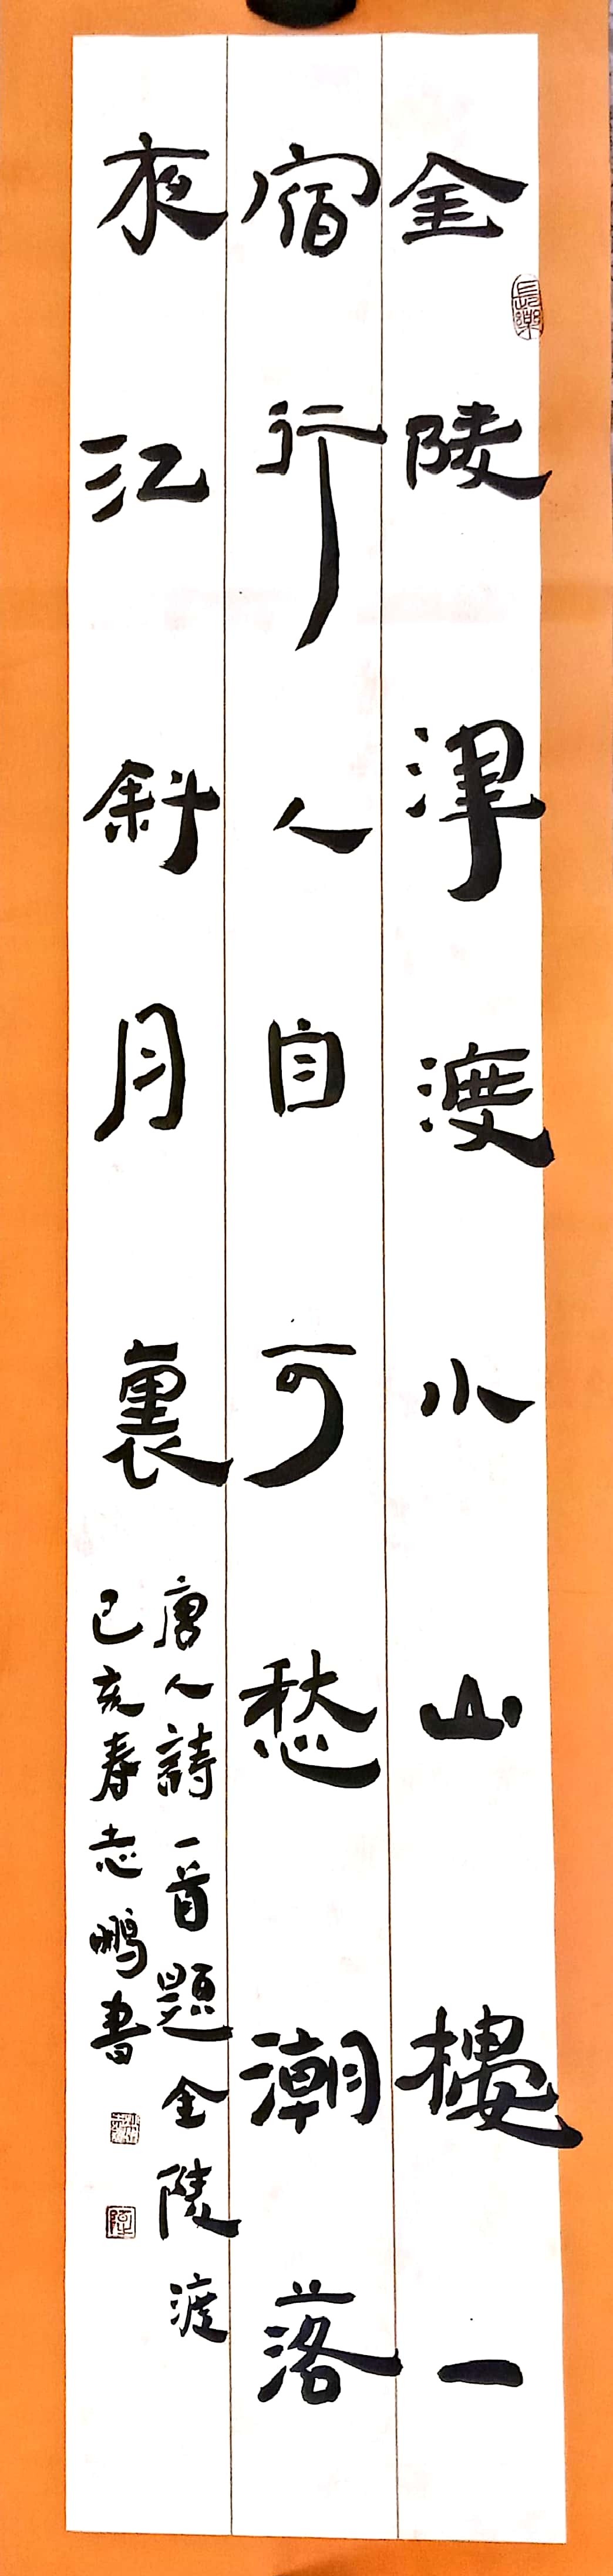 金陵津渡小山樓一
宿行人自可愁潮落
夜江斜月裏
唐人詩一首題金陵渡
己亥春志鵬書
長樂